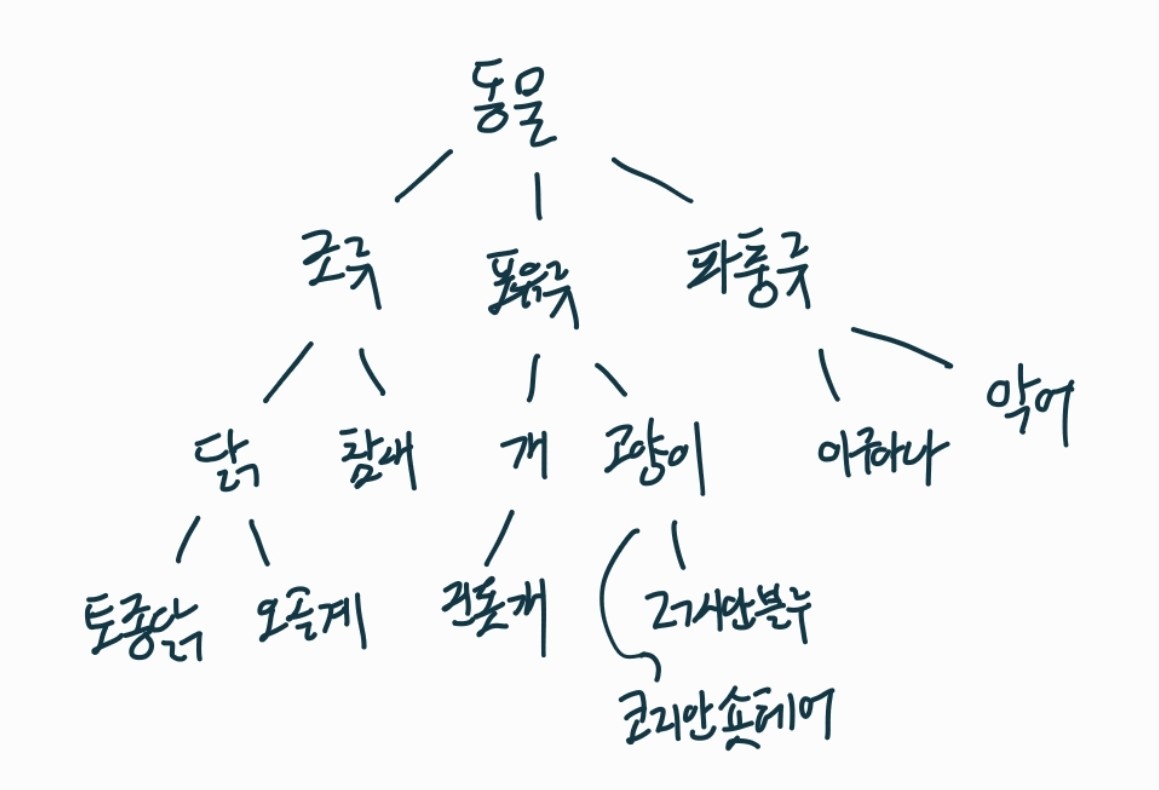 동물
조류 포유류 파충류
닭 참새 개 고양이 이구아나 악어
토종닭 오골계 진돗개 러시안블루
코리안숏헤어